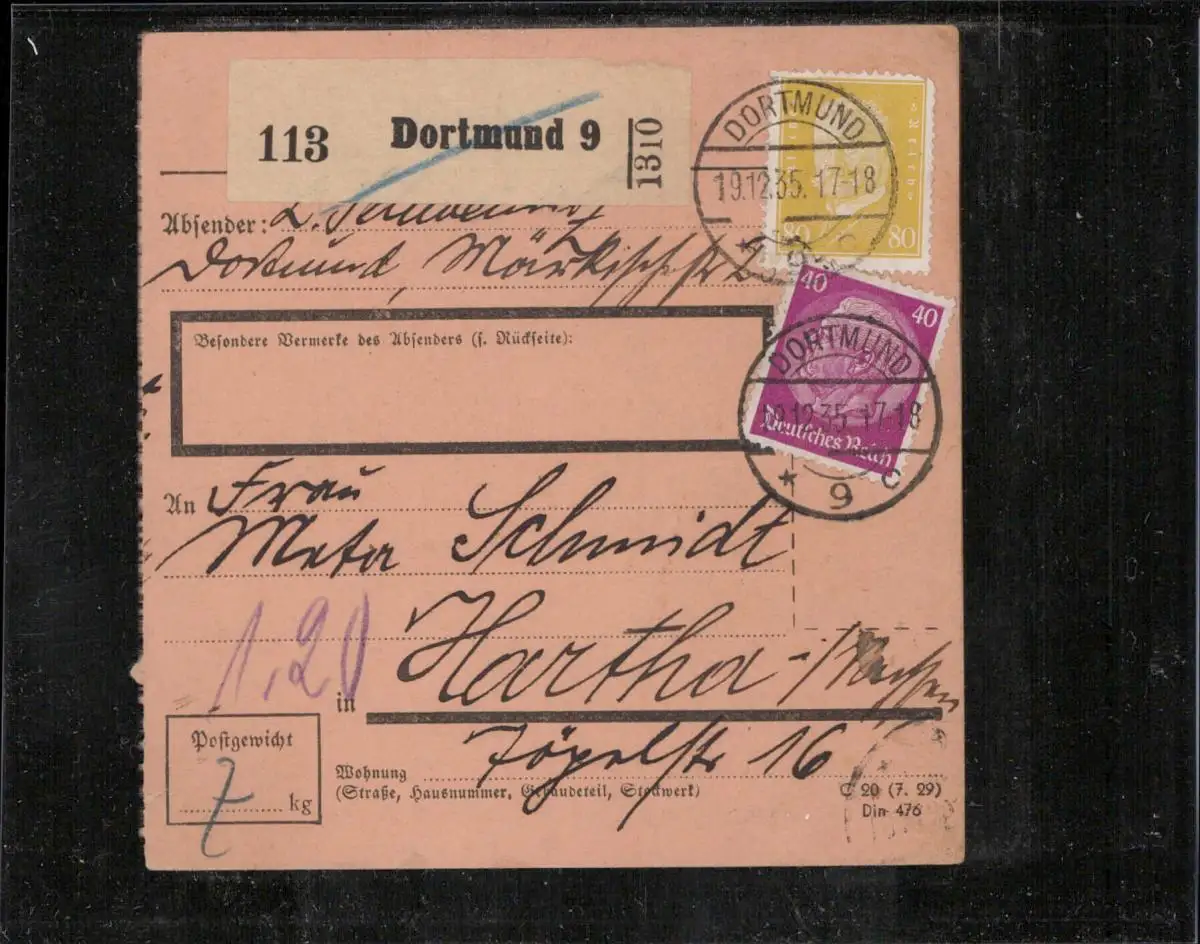 113 Dortmund 9 1310
DORTMUND
19.12.35. 17-18
80 80
* 9 c
Absender:
Dortmund, Märkischstr
40 40
DORTMUND
19.12.35. 17-18
Deutsches Reich
* 9 c
Besondere Vermerke des Absenders (s. Rückseite):
An Frau
Meta Schmidt
1,20
in Hartha-
Postgewicht
7 kg
16
Wohnung
(Straße, Hausnummer, Gebäudeteil, Stockwerk)
C 20 (7. 29)
Din 476